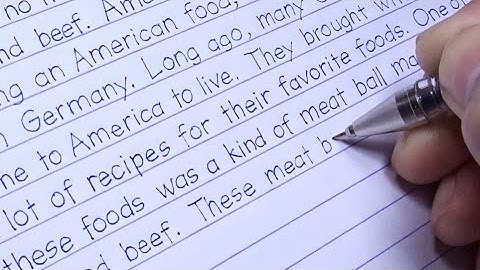 no
and beef. Am
ng an American food,
Germany. Long ago, many
me to America to live. They brought wi
lot of recipes for their favorite foods. One o
these foods was a kind of meat ball ma
d beef. These meat b